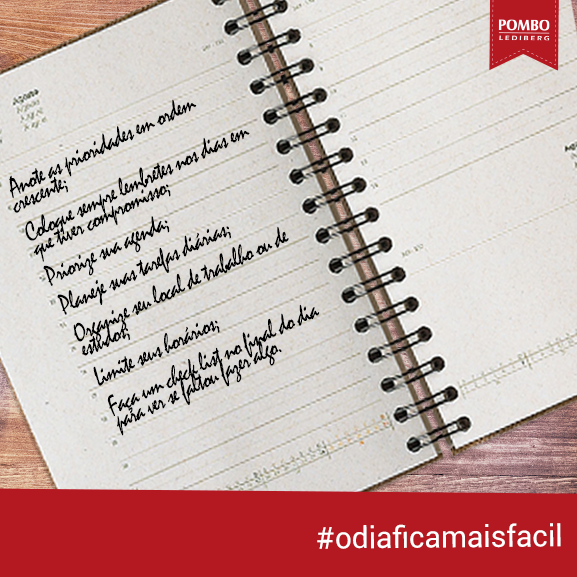 POMBO
LEDIBERG
Agosto
Anote as prioridades em ordem
crescente;
Coloque sempre lembretes nos dias em
que tiver compromisso;
Priorize sua agenda;
Planeje suas tarefas diárias;
Organize seu local de trabalho ou de
estudos;
Limite seus horários;
Faça um check list no final do dia
para ver se faltou fazer algo.
#odiaficamaisfacil